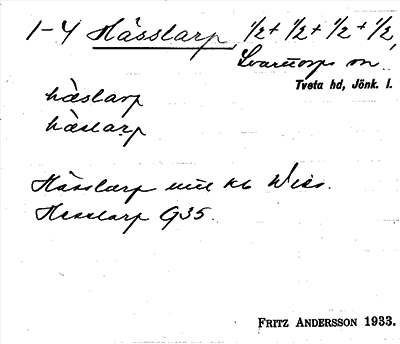 1-4 Hässlarp, 1/2 + 1/2 + 1/2 + 1/2,
Svarttorps sn.
Tveta hd, Jönk. l.
hæslarp
hæslarp
Hässlarp
Hesslarp G35.
FRITZ ANDERSSON 1933.